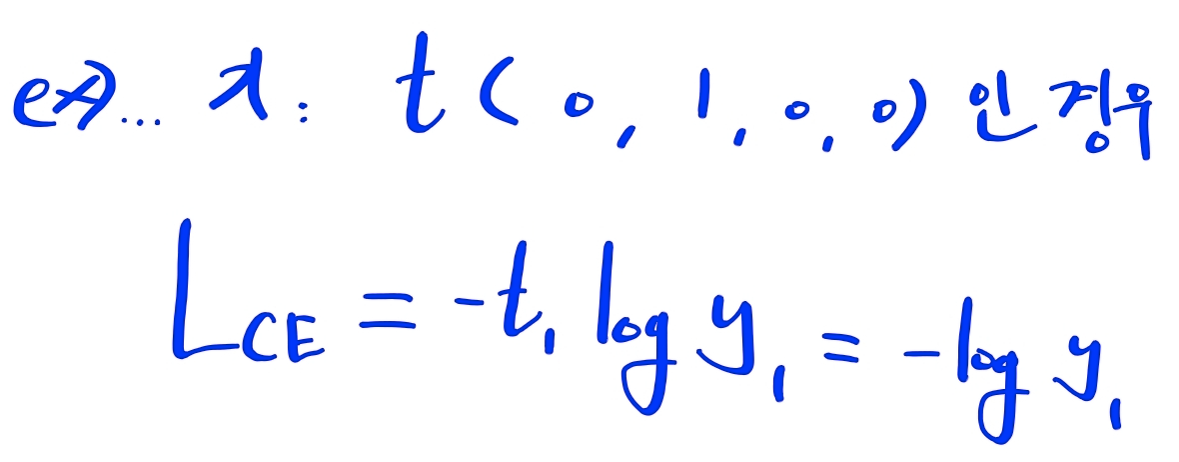 ex)... x: t(0, 1, 0, 0)인 경우
L_CE = -t_1 log y_1 = -log y_1